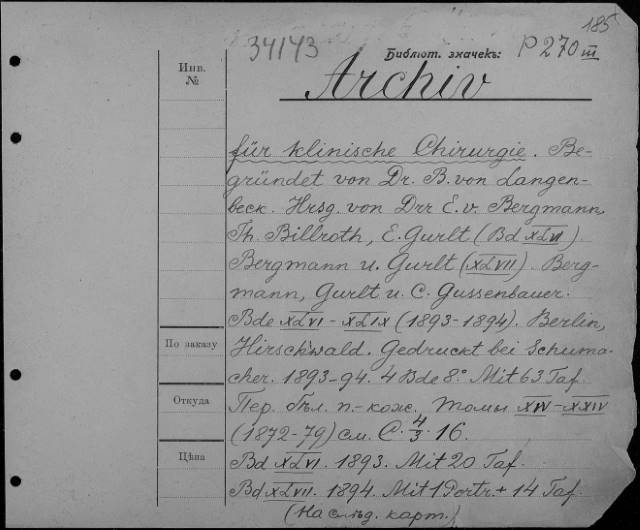 185
34143 Библіот. значекъ: P 270 III
Archiv
Инв.
№
für klinische Chirurgie. Be-
gründet von Dr. B. von Langen-
beck. Hrsg. von Drr E. v. Bergmann,
Th. Billroth, E. Gurlt (Bd XLVI).
Bergmann u. Gurlt (XLVII). Berg-
mann, Gurlt u. C. Gussenbauer.
Bde XLVI - XLIX (1893-1894). Berlin,
Hirschwald. Gedruckt bei Schuma-
cher. 1893-94. 4 Bde 8°. Mit 63 Taf.
Пер. бѣл. п.-кож. Томы XIV-XXIV
(1872-79) см. C. 4/3. 16.
Bd XLVI. 1893. Mit 20 Taf.
Bd XLVII. 1894. Mit 1 Portr. + 14 Taf.
(На слѣд. карт.)
По заказу
Откуда
Цѣна